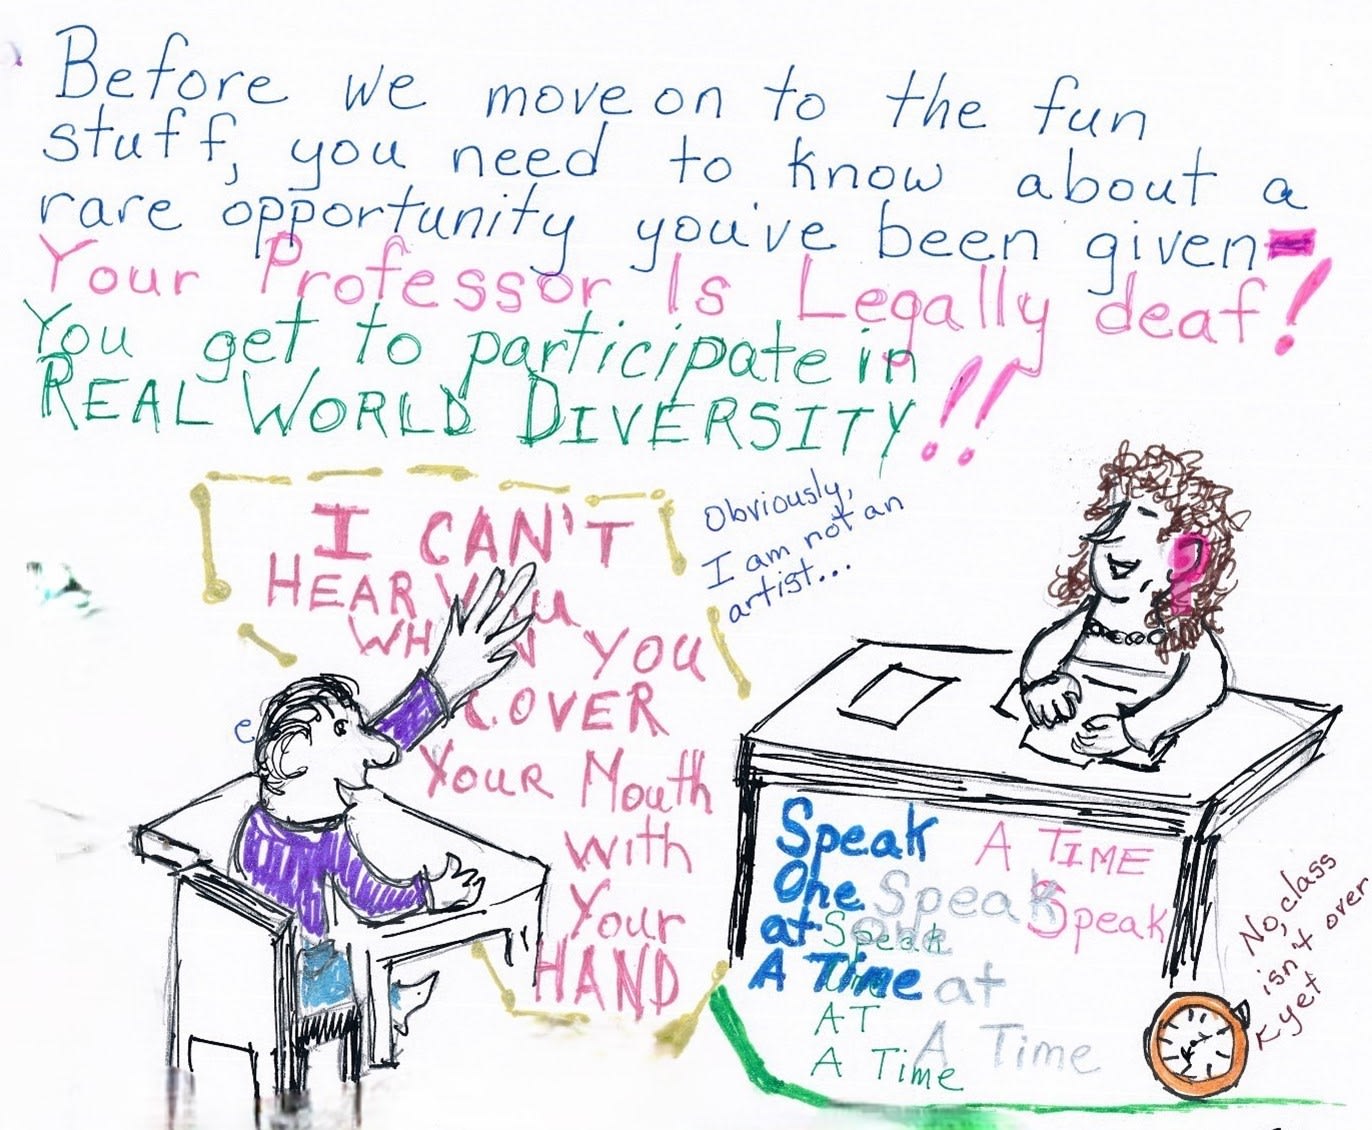 Before we move on to the fun
stuff, you need to know about a
rare opportunity you've been given-
Your Professor Is Legally deaf!
You get to participate in
REAL WORLD DIVERSITY!!
I CAN'T
HEAR YOU
WHEN YOU
COVER
Your Mouth
with
Your
HAND
Obviously,
I am not an
artist...
e
Speak
One
at
A Time
A TIME
Speak
Speak
One
at
A Time
Speak
AT
A Time
No, class
isn't over
yet